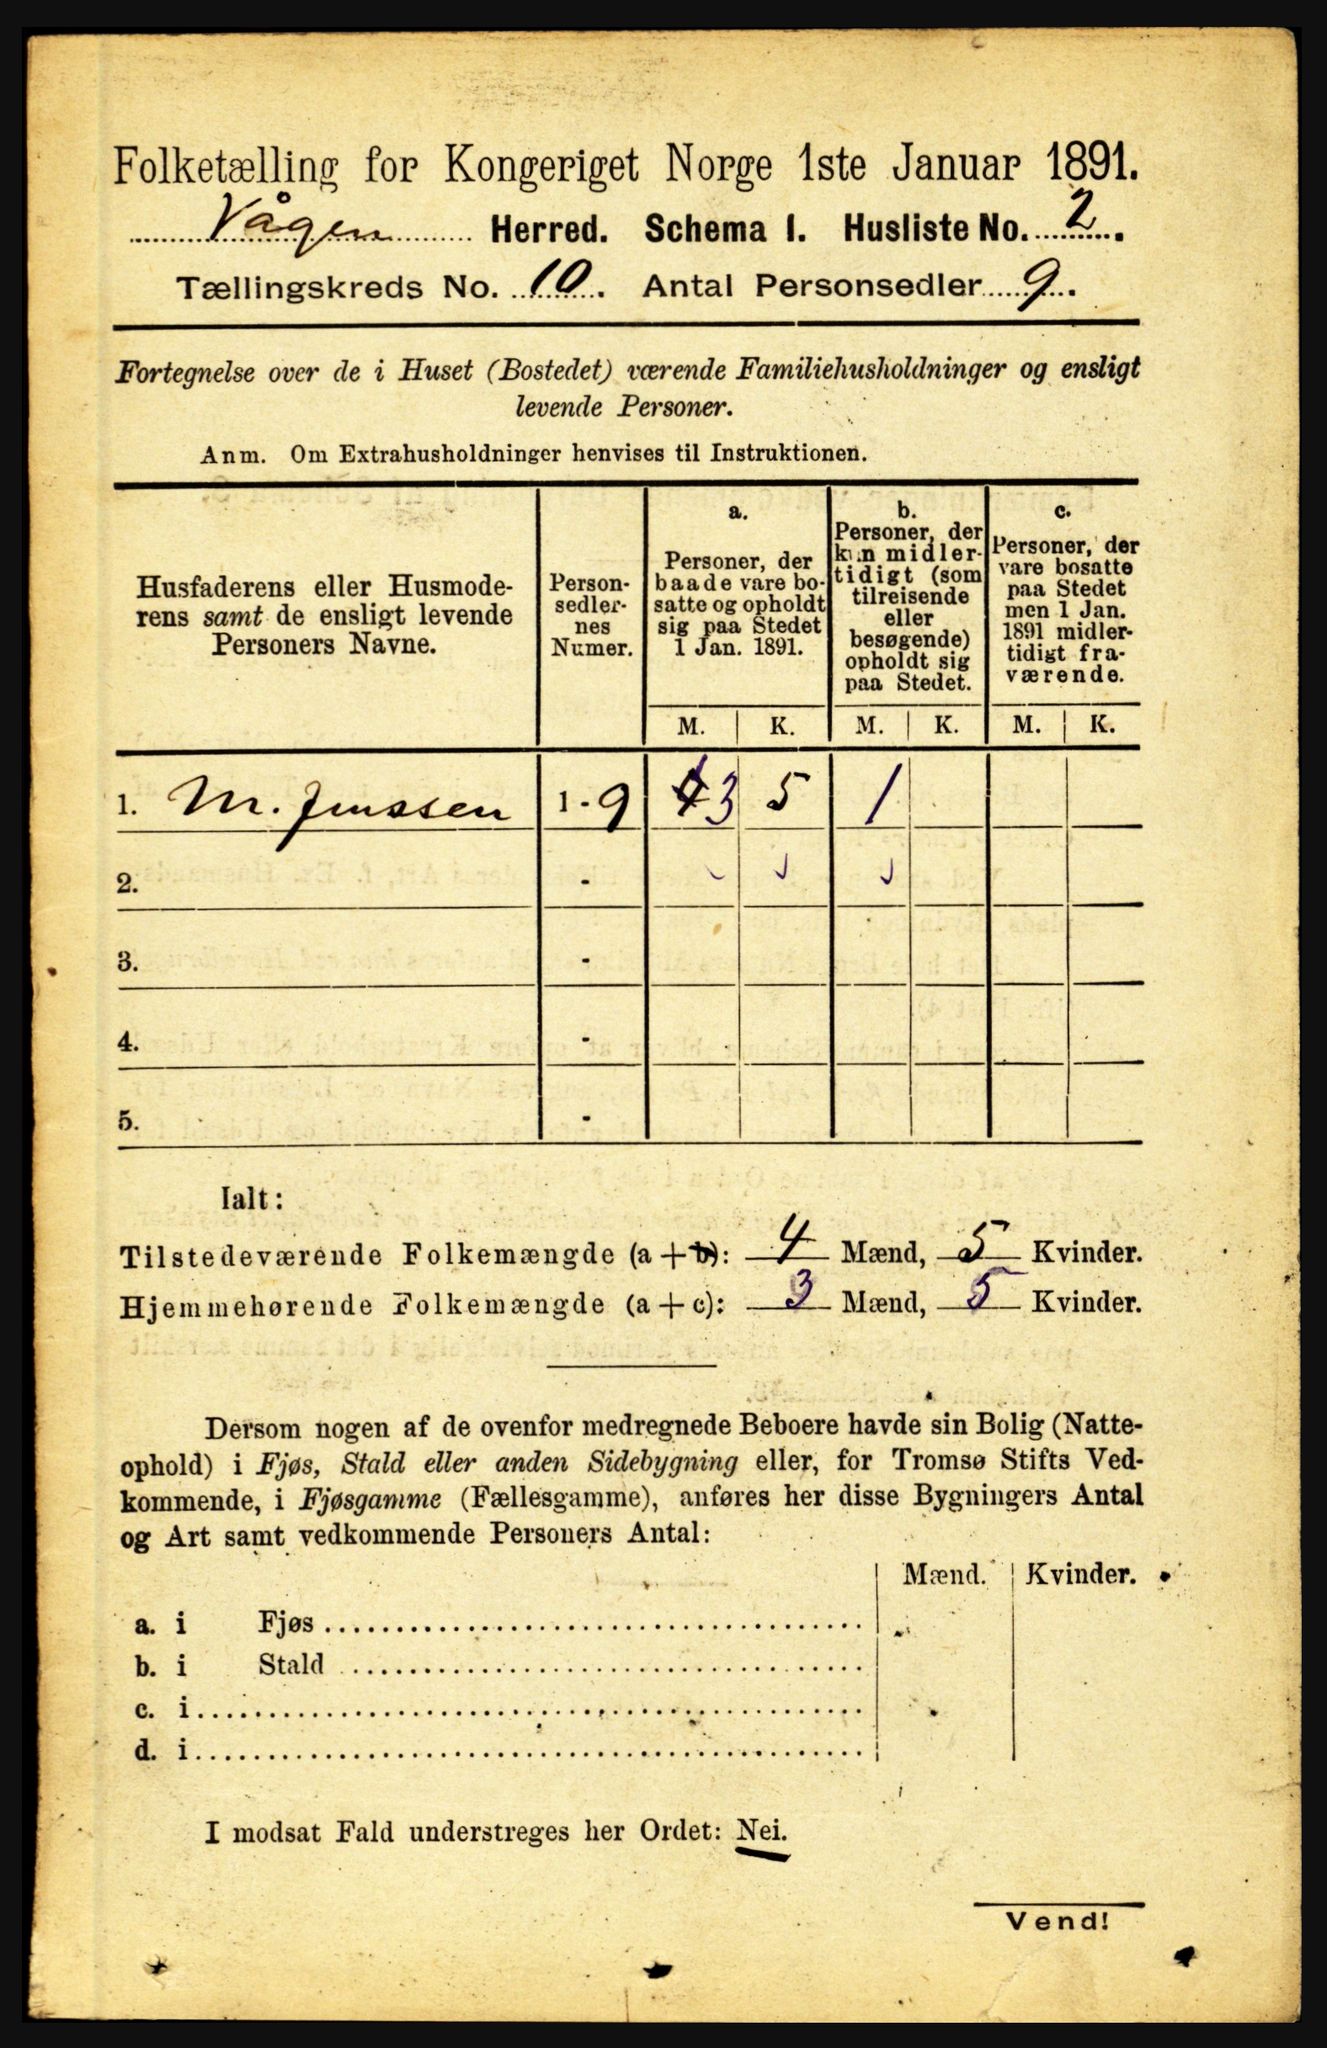 Folketælling for Kongeriget Norge 1ste Januar 1891.
Vågen Herred. Schema I. Husliste No. 2.
Tællingskreds No. 10. Antal Personsedler 9.
Fortegnelse over de i Huset (Bostedet) værende Familiehusholdninger og ensligt
levende Personer.
Anm. Om Extrahusholdninger henvises til Instruktionen.
Husfaderens eller Husmode-
rens samt de ensligt levende
Personers Navne.
Person-
sedler-
nes
Numer.
a.
Personer, der
baade vare bo-
satte og opholdt
sig paa Stedet
1 Jan. 1891.
b.
Personer, der
kun midler-
tidigt (som
tilreisende
eller
besøgende)
opholdt sig
paa Stedet.
c.
Personer, der
vare bosatte
paa Stedet
men 1 Jan.
1891 midler-
tidigt fra-
værende.
M. K. M. K. M. K.
1. M. Jenssen 1 - 9 4 3 5 1
2. -
3. -
4. -
5. -
Ialt:
Tilstedeværende Folkemængde (a + b): 4 Mænd, 5 Kvinder.
Hjemmehørende Folkemængde (a + c): 3 Mænd, 5 Kvinder.
Dersom nogen af de ovenfor medregnede Beboere havde sin Bolig (Natte-
ophold) i Fjøs, Stald eller anden Sidebygning eller, for Tromsø Stifts Ved-
kommende, i Fjøsgamme (Fællesgamme), anføres her disse Bygningers Antal
og Art samt vedkommende Personers Antal:
Mænd. Kvinder.
a. i Fjøs
b. i Stald
c. i
d. i
I modsat Fald understreges her Ordet: Nei.
Vend!